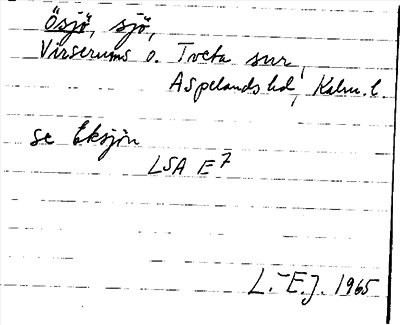 Ösjö, sjö,
Virserums o. Tveta snr,
Aspelands hd, Kalm. l.
se Eksjön
LSA E7
L.-E.J. 1965